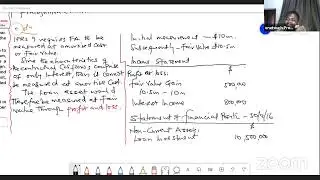 IFRS 9 requires FA to be
measured at amortised cost
or fair value.
Since the characteristics of
the contractual cashflows, comprise
of only interest, then it cannot
be measured at amortised cost.
The loan asset would
therefore be measured at fair
value through profit and loss.
Initial measurement — $10m
Subsequently - fair value $10.5m
Income Statement
Profit or loss: $
fair value Gain 500,000
10.5m - 10m
Interest income 800,000
Statement of financial Position - 30/9/16
Non-Current Assets: $
Loan investment 10,500,000
zoom